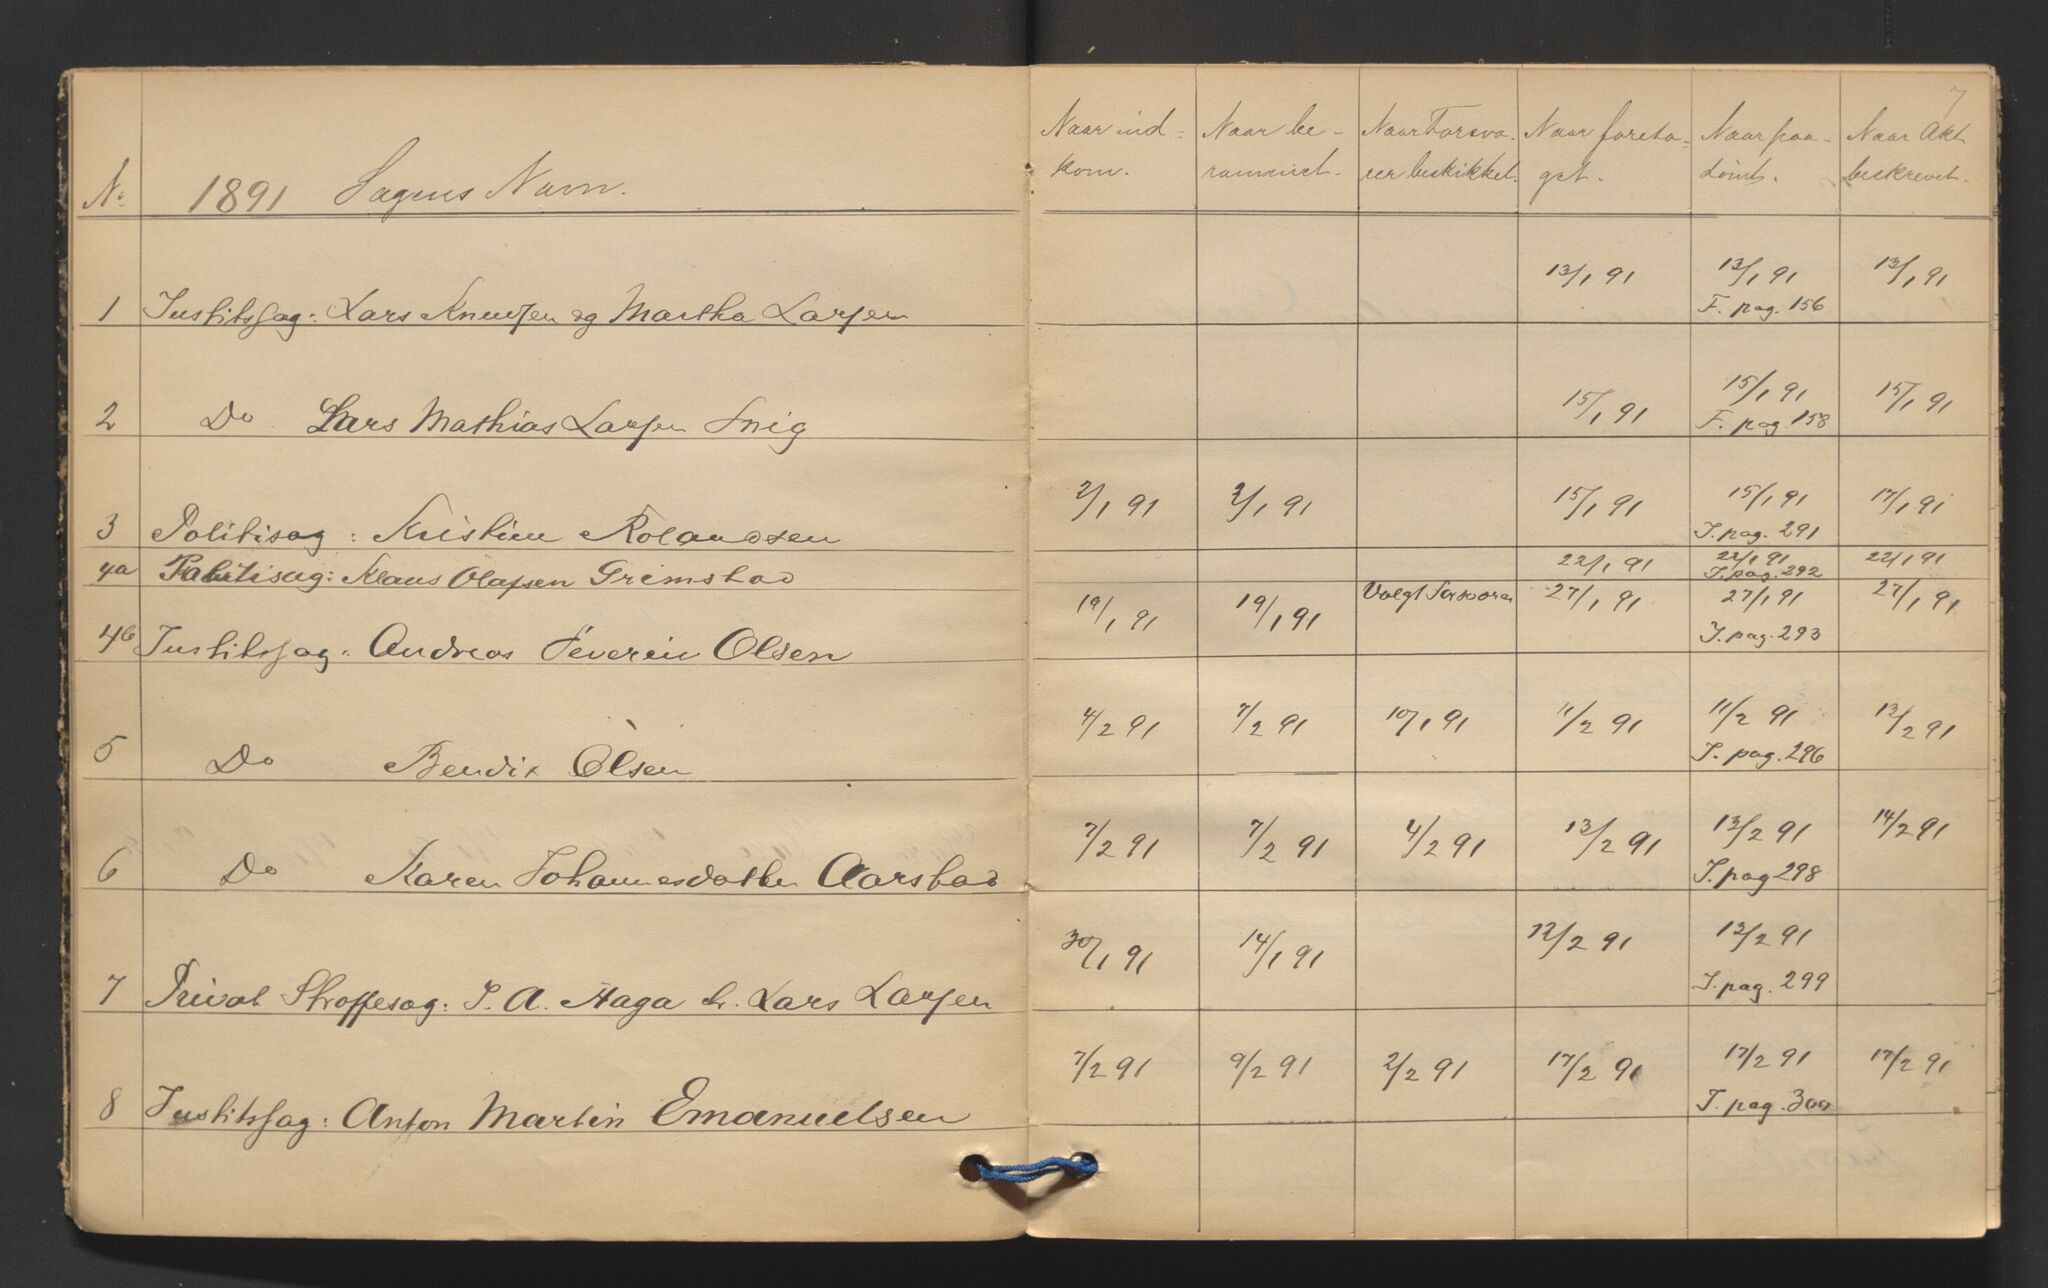 7
No 1891 Sagens Navn. Naar ind= Naar be- Naar Forsva- Naar foreta= Naar paa- Naar Akt
kom. rammet. rer beskikket. get. dömt. beskrevet.
13/1 91 13/1 91 13/1 91
1 Justitssag: Lars Knudsen og Martha Larsen F. pag. 156
15/1 91 15/1 91 15/1 91
2 Do Lars Mathias Larsen F. pag. 158
2/1 91 2/1 91 15/1 91 15/1 91 17/1 91
3 Politisag: Kristian Rolandsen J. pag. 291
22/1 91 22/1 91 22/1 91
4a Politisag: Klaus Olafsen Grimstad J. pag. 292
19/1 91 19/1 91 Valgt Forsvarer 27/1 91 27/1 91 27/1 91
4b Justitssag: Andreas Severin Olsen J. pag. 293
4/2 91 7/2 91 10/1 91 11/2 91 11/2 91 12/2 91
5 Do Bendix Olsen J. pag. 296
7/2 91 7/2 91 4/2 91 13/2 91 13/2 91 14/2 91
6 Do Karen Johannesdatter Aarstad J. pag 298
30/1 91 14/1 91 12/2 91 13/2 91
7 Privat Straffesag: J. A. Haga ctr. Lars Larsen J. pag. 299
7/2 91 9/2 91 2/2 91 17/2 91 17/2 91 17/2 91
8 Justitssag: Anton Martin Emanuelsen J. pag. 300